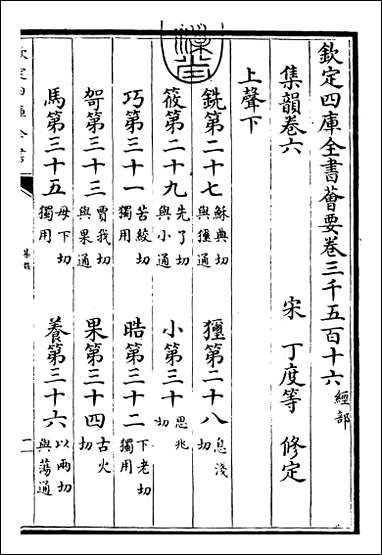 欽定四庫全書薈要卷三千五百十六 經部
集韻卷六 宋 丁度等 修定
上聲下
銑第二十七 穌典切與獮通 獮第二十八 息淺切
筱第二十九 先了切與小通 小第三十 思兆切
巧第三十一 苦絞切獨用 晧第三十二 下老切獨用
哿第三十三 賈我切與果通 果第三十四 古火切
馬第三十五 母下切獨用 養第三十六 以兩切與蕩通
欽定四庫全書
集韻